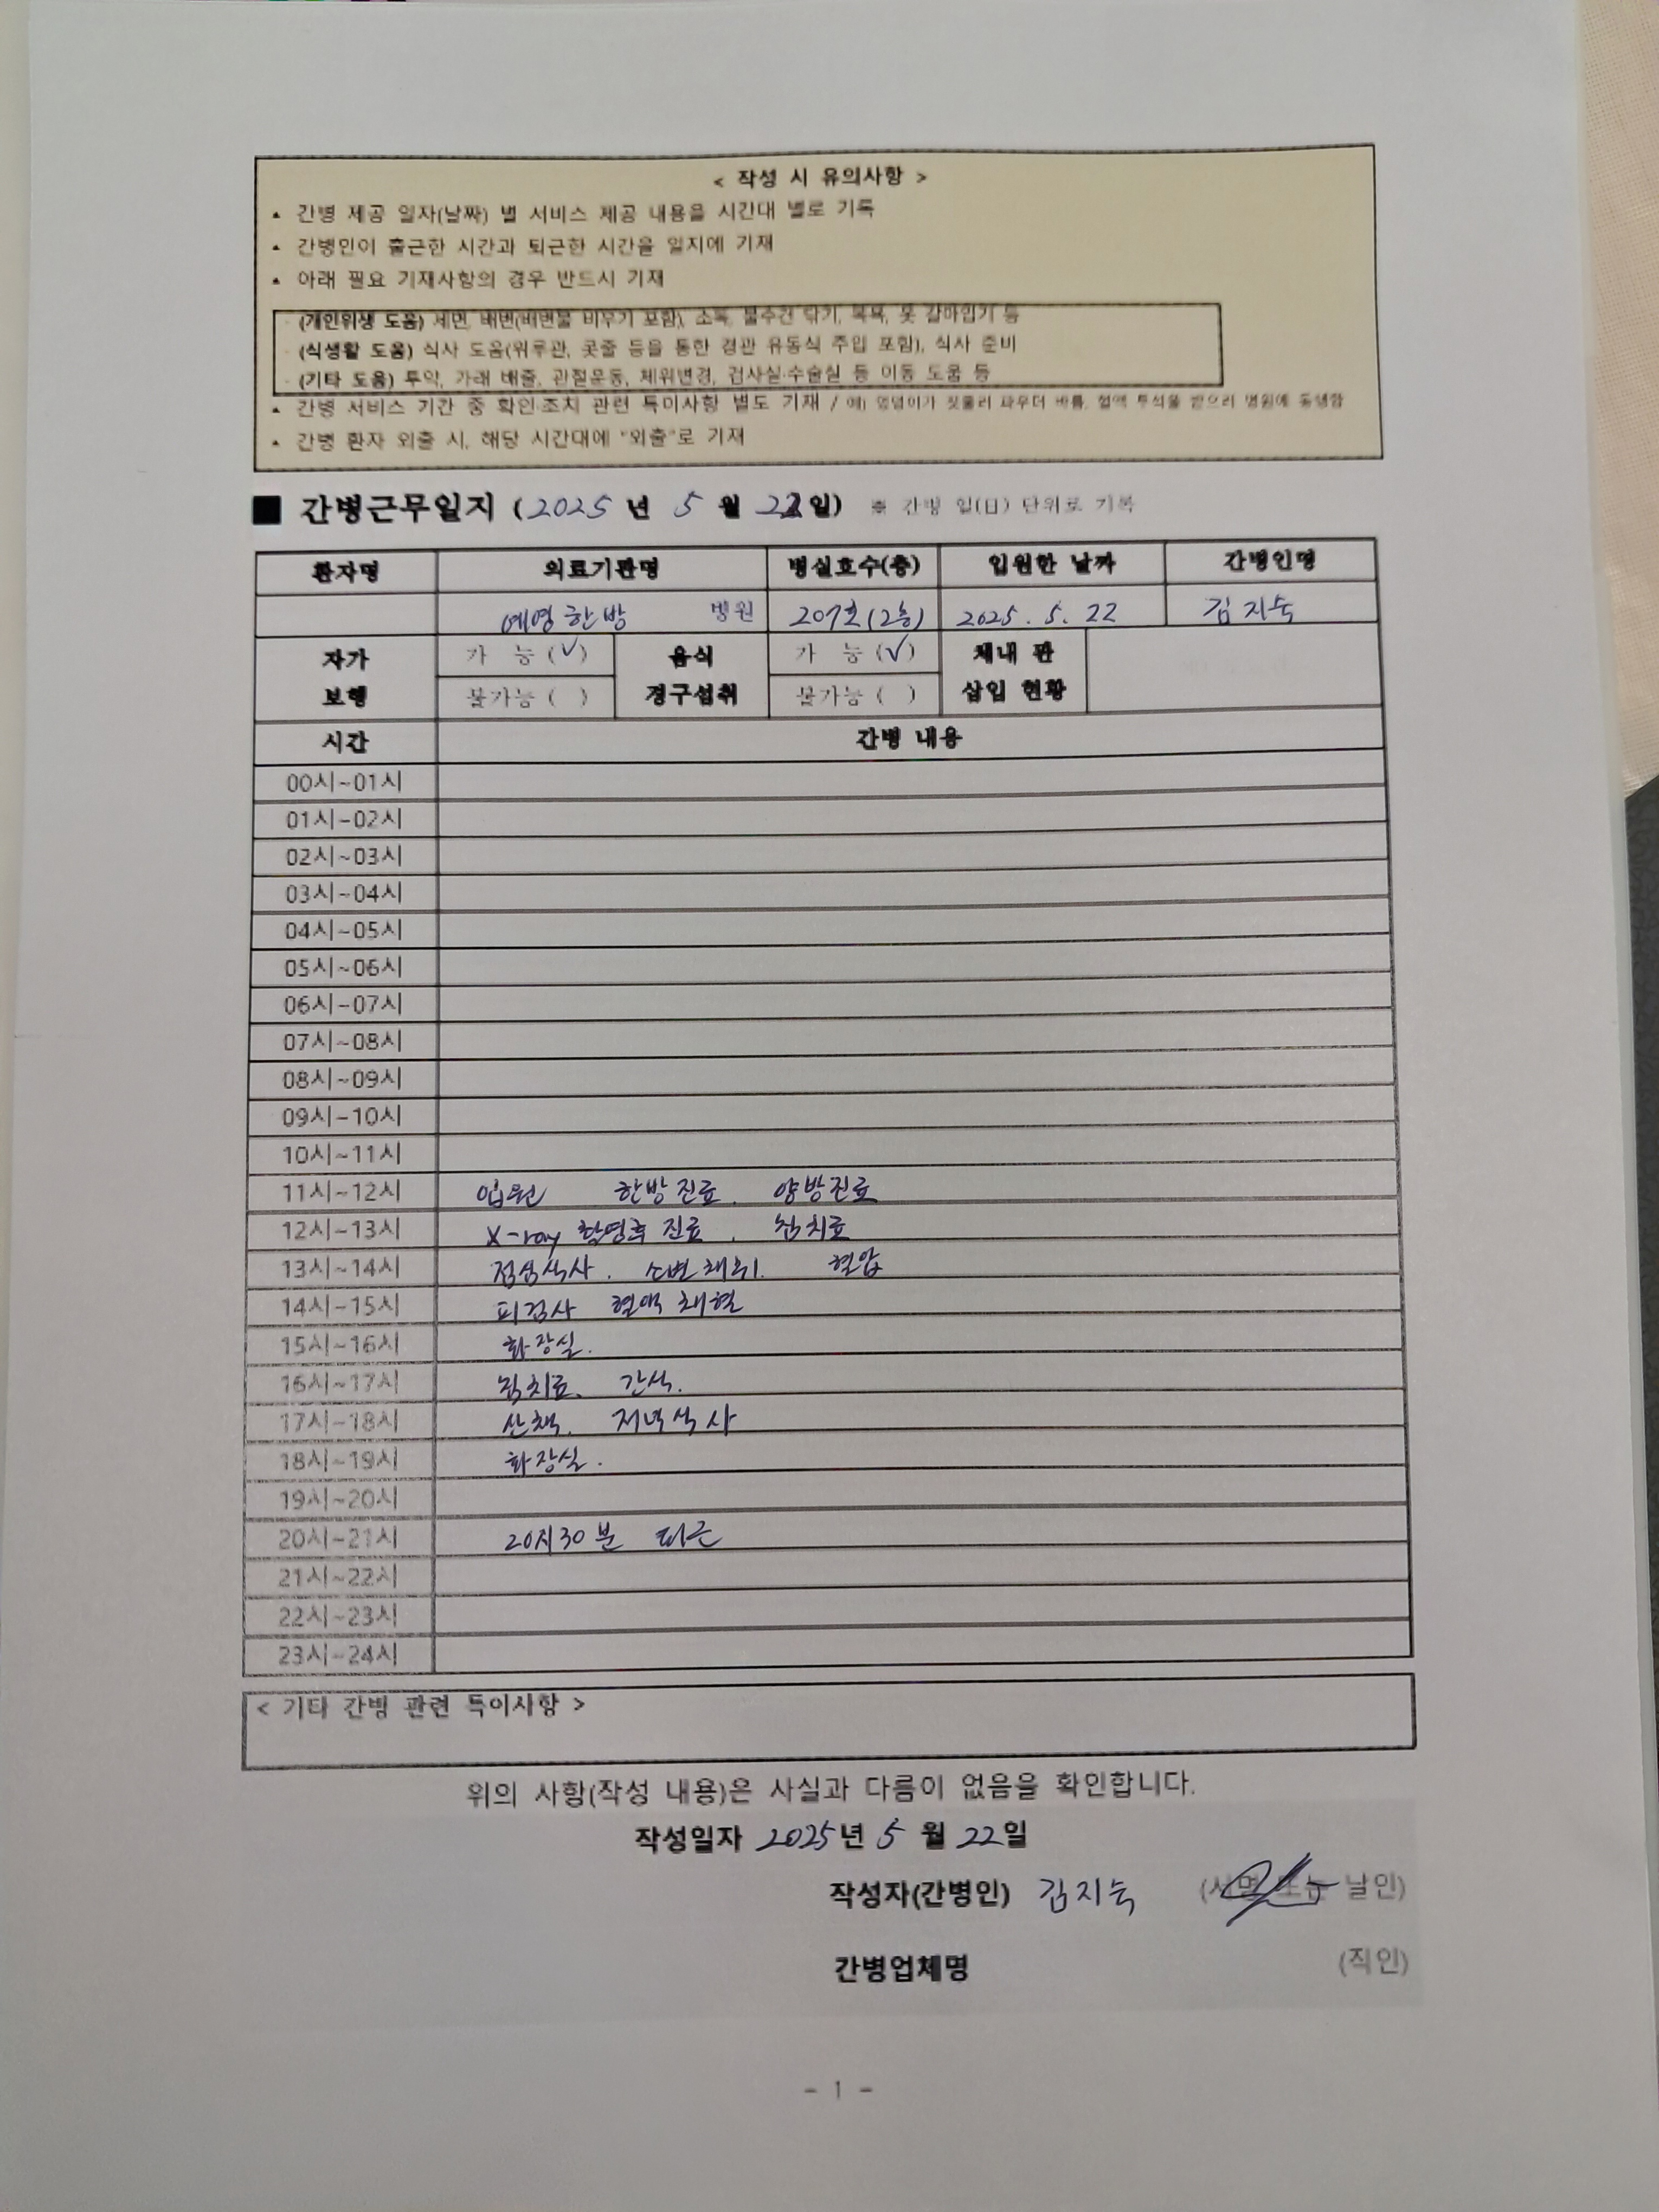 < 작성 시 유의사항 >
▲ 간병 제공 일자(날짜) 별 서비스 제공 내용을 시간대 별로 기록
▲ 간병인이 출근한 시간과 퇴근한 시간을 일지에 기재
▲ 아래 필요 기재사항의 경우 반드시 기재
- (개인위생 도움) 세면, 배변(배변물 비우기 포함), 소독, 물수건 닦기, 목욕, 옷 갈아입기 등
- (식생활 도움) 식사 도움(위루관, 콧줄 등을 통한 경관 유동식 주입 포함), 식사 준비
- (기타 도움) 투약, 가래 배출, 관절운동, 체위변경, 검사실·수술실 등 이동 도움 등
▲ 간병 서비스 기간 중 확인·조치 관련 특이사항 별도 기재 / 예) 엉덩이가 짓물러 파우더 바름, 혈액 투석을 받으러 병원에 동행함
▲ 간병 환자 외출 시, 해당 시간대에 "외출"로 기재
■ 간병근무일지 (2025 년 5 월 22일) ※ 간병 일(日) 단위로 기록
환자명 의료기관명 병실호수(층) 입원한 날짜 간병인명
예영한방 병원 207호(2층) 2025. 5. 22 김지숙
자가 보행 가 능 (√) 음식 경구섭취 가 능 (√) 체내 관 삽입 현황
불가능 ( ) 불가능 ( )
시간 간병 내용
00시~01시
01시~02시
02시~03시
03시~04시
04시~05시
05시~06시
06시~07시
07시~08시
08시~09시
09시~10시
10시~11시
11시~12시 입원 한방진료. 양방진료
12시~13시 X-ray 촬영후 진료. 침치료
13시~14시 점심식사. 소변채취. 혈압
14시~15시 피검사 혈액 채혈
15시~16시 화장실.
16시~17시 침치료. 간식.
17시~18시 산책. 저녁식사
18시~19시 화장실.
19시~20시
20시~21시 20시30분 퇴근
21시~22시
22시~23시
23시~24시
< 기타 간병 관련 특이사항 >
위의 사항(작성 내용)은 사실과 다름이 없음을 확인합니다.
작성일자 2025년 5 월 22일
작성자(간병인) 김지숙 (서명 또는 날인)
간병업체명 (직인)
- 1 -